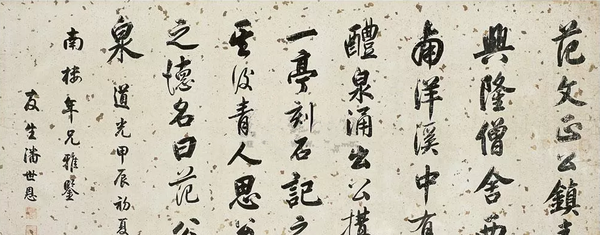 范文正公鎮青
興隆僧舍西
南洋溪中有
醴泉涌出公構
一亭刻石記之
其後青人思公
之德名曰范公
泉 道光甲辰初夏
南樓年兄雅鑒
友生潘世恩